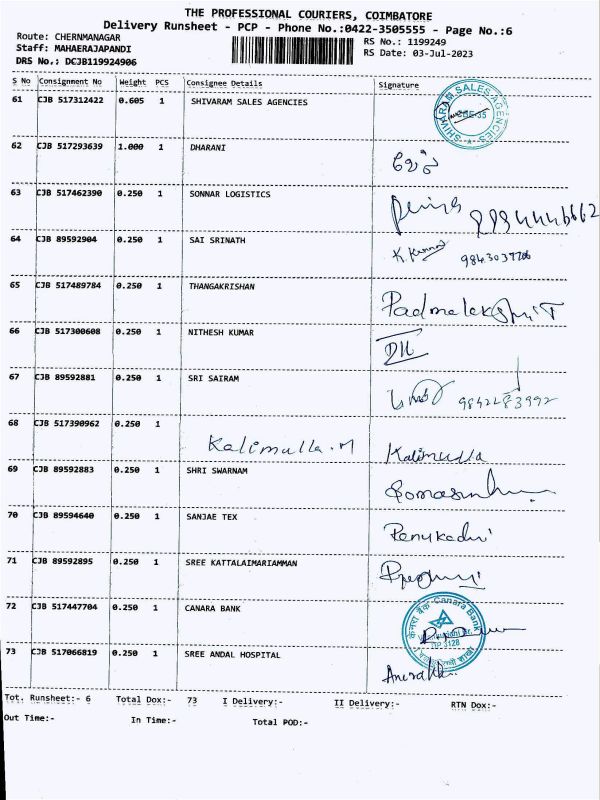 THE PROFESSIONAL COURIERS, COIMBATORE
Delivery Runsheet - PCP - Phone No.:0422-3505555 - Page No.:6
Route: CHERNMANAGAR
RS No.: 1199249
Staff: MAHAERAJAPANDI
RS Date: 03-Jul-2023
DRS No.; DCJB119924906
S No Consignment No Weight PCS Consignee Details Signature
61 CJB 517312422 0.605 1 SHIVARAM SALES AGENCIES SHIVARAM SALES AGENCIES CBE-35
62 CJB 517293639 1.000 1 DHARANI
63 CJB 517462390 0.250 1 SONNAR LOGISTICS
64 CJB 89592904 0.250 1 SAI SRINATH
65 CJB 517489784 0.250 1 THANGAKRISHAN
66 CJB 517300608 0.250 1 NITHESH KUMAR
67 CJB 89592881 0.250 1 SRI SAIRAM
68 CJB 517390962 0.250 1 Kalimulla.M Kalimulla
69 CJB 89592883 0.250 1 SHRI SWARNAM
70 CJB 89594640 0.250 1 SANJAE TEX
71 CJB 89592895 0.250 1 SREE KATTALAIMARIAMMAN
72 CJB 517447704 0.250 1 CANARA BANK केनरा बैंक Canara Bank
73 CJB 517066819 0.250 1 SREE ANDAL HOSPITAL
Tot. Runsheet:- 6 Total Dox:- 73 I Delivery:- II Delivery:- RTN Dox:-
Out Time:- In Time:- Total POD:-